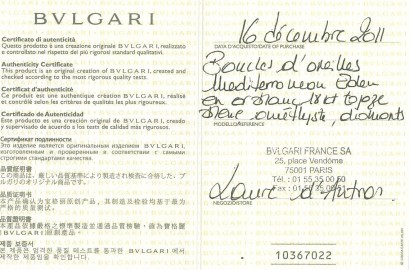 BVLGARI
Certificato di autenticità
Questo prodotto è una creazione originale BVLGARI, realizzato
e controllato nel rispetto dei più rigorosi standard qualitativi.
Authenticity Certificate
This product is an original creation of BVLGARI, created and
checked according to the most rigorous quality tests.
Certificat d'authenticité
Ce produit est une authentique création BVLGARI, réalisé
et contrôlé selon les critères de qualités les plus rigoureux.
Certificado de Autenticidad
Este producto es una creación original de BVLGARI, creado
y supervisado de acuerdo a los tests de calidad más rigurosos.
Сертификат подлинности
Это изделие является оригинальным изделием BVLGARI,
изготовленным и проверенным в соответствии с самыми
строгими стандартами качества.
品質証明書
この商品は、厳しい品質基準により製造され検査に合格した、ブ
ルガリのオリジナル商品です。
品质证明书
品質證明書
제품 보증서
본 제품은 엄격한 품질 테스트를 통과한 BVLGARI 에서
제작한 제품임을 확인합니다.
16 décembre 2011
DATA D'ACQUISTO/DATE OF PURCHASE
Boucles d'oreilles
Mediterranean Eden
en or blanc 18kt topaze
bleue améthyste, diamants
MODELLO/REFERENCE
BVLGARI FRANCE SA
25, place Vendôme
75001 PARIS
Tél. : 01 55 35 00 50
Fax : 01 55 35 00
NEGOZIO/STORE
10367022